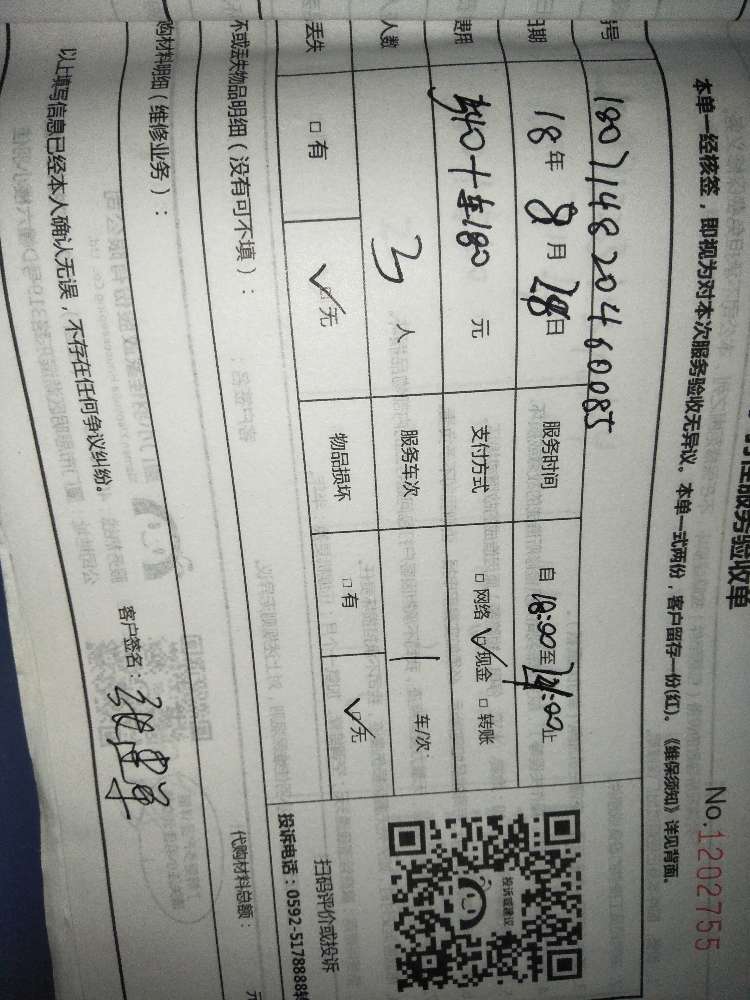 服务验收单
No.1202755
本单一经核签，即视为对本次服务验收无异议。本单一式两份，客户留存一份(红)。《维保须知》详见背面。
号 180714820460085
日期 18年8月28日 服务时间 自18:00至21:00止
费用 元 支付方式 □网络 ☑现金 □转账
人数 3人 服务车次 1 车/次
丢失 □有 ☑无 物品损坏 □有 ☑无
投诉或建议
扫码评价或投诉
投诉电话：0592-5178888转
坏或丢失物品明细（没有可不填）：
购材料明细（维修业务）：
代购材料总额： 元
以上填写信息已经本人确认无误，不存在任何争议纠纷。 客户签名：